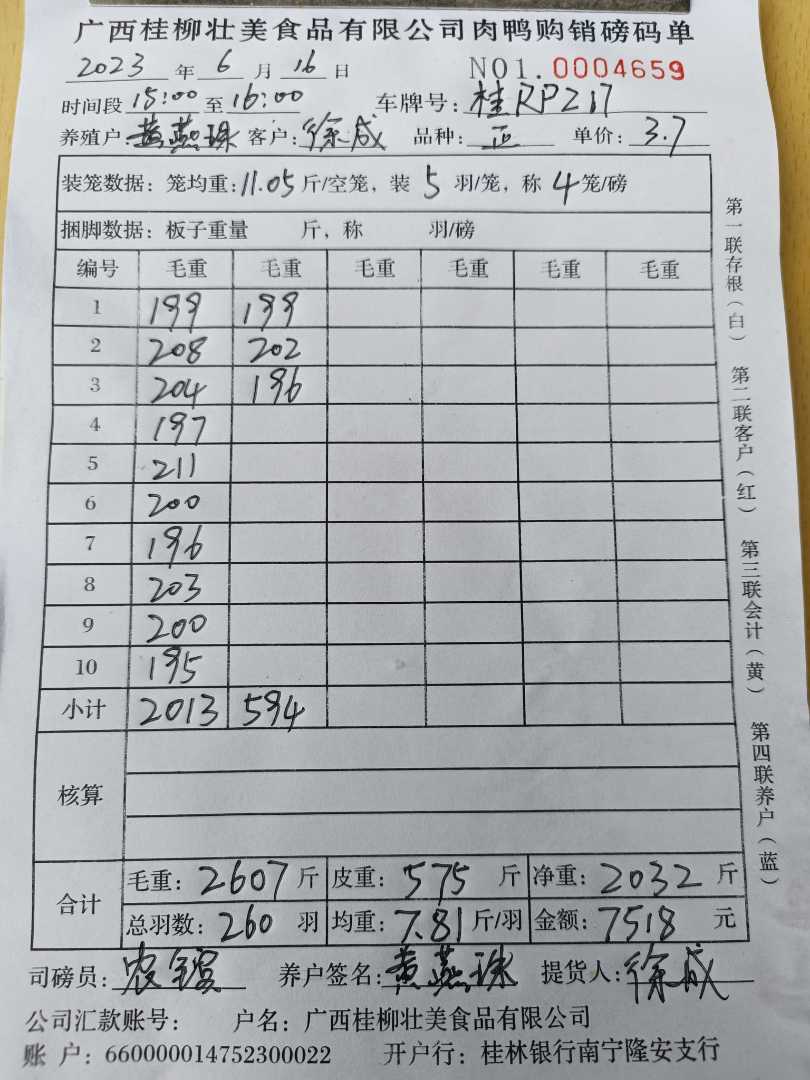 广西桂柳壮美食品有限公司肉鸭购销磅码单
2023 年 6 月 16 日 NO1. 0004659
时间段 15:00 至 16:00 车牌号: 桂RPZ17
养殖户: 黄燕珠 客户: 徐成 品种: 正 单价: 3.7
装笼数据: 笼均重: 11.05 斤/空笼, 装 5 羽/笼, 称 4 笼/磅
捆脚数据: 板子重量 斤, 称 羽/磅
编号 毛重 毛重 毛重 毛重 毛重 毛重
1 199 199
2 208 202
3 204 196
4 197
5 211
6 200
7 196
8 203
9 200
10 195
小计 2013 594
核算
合计
毛重: 2607 斤 皮重: 575 斤 净重: 2032 斤
总羽数: 260 羽 均重: 7.81 斤/羽 金额: 7518 元
司磅员: 农 养户签名: 黄燕珠 提货人: 徐成
公司汇款账号: 户名: 广西桂柳壮美食品有限公司
账 户: 660000014752300022 开户行: 桂林银行南宁隆安支行
第一联存根(白) 第二联客户(红) 第三联会计(黄) 第四联养户(蓝)